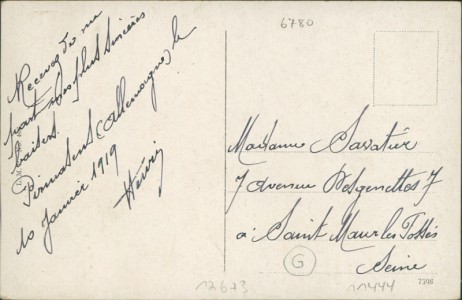 6780
Recevez de ma
part mes plus sincères
baisers.
Pirmasens (Allemagne) le
10 Janvier 1919
Madame Savatier
7 Avenue Desgenettes 7
à Saint Maur les Fossés
Seine
G
12673
11444
7396